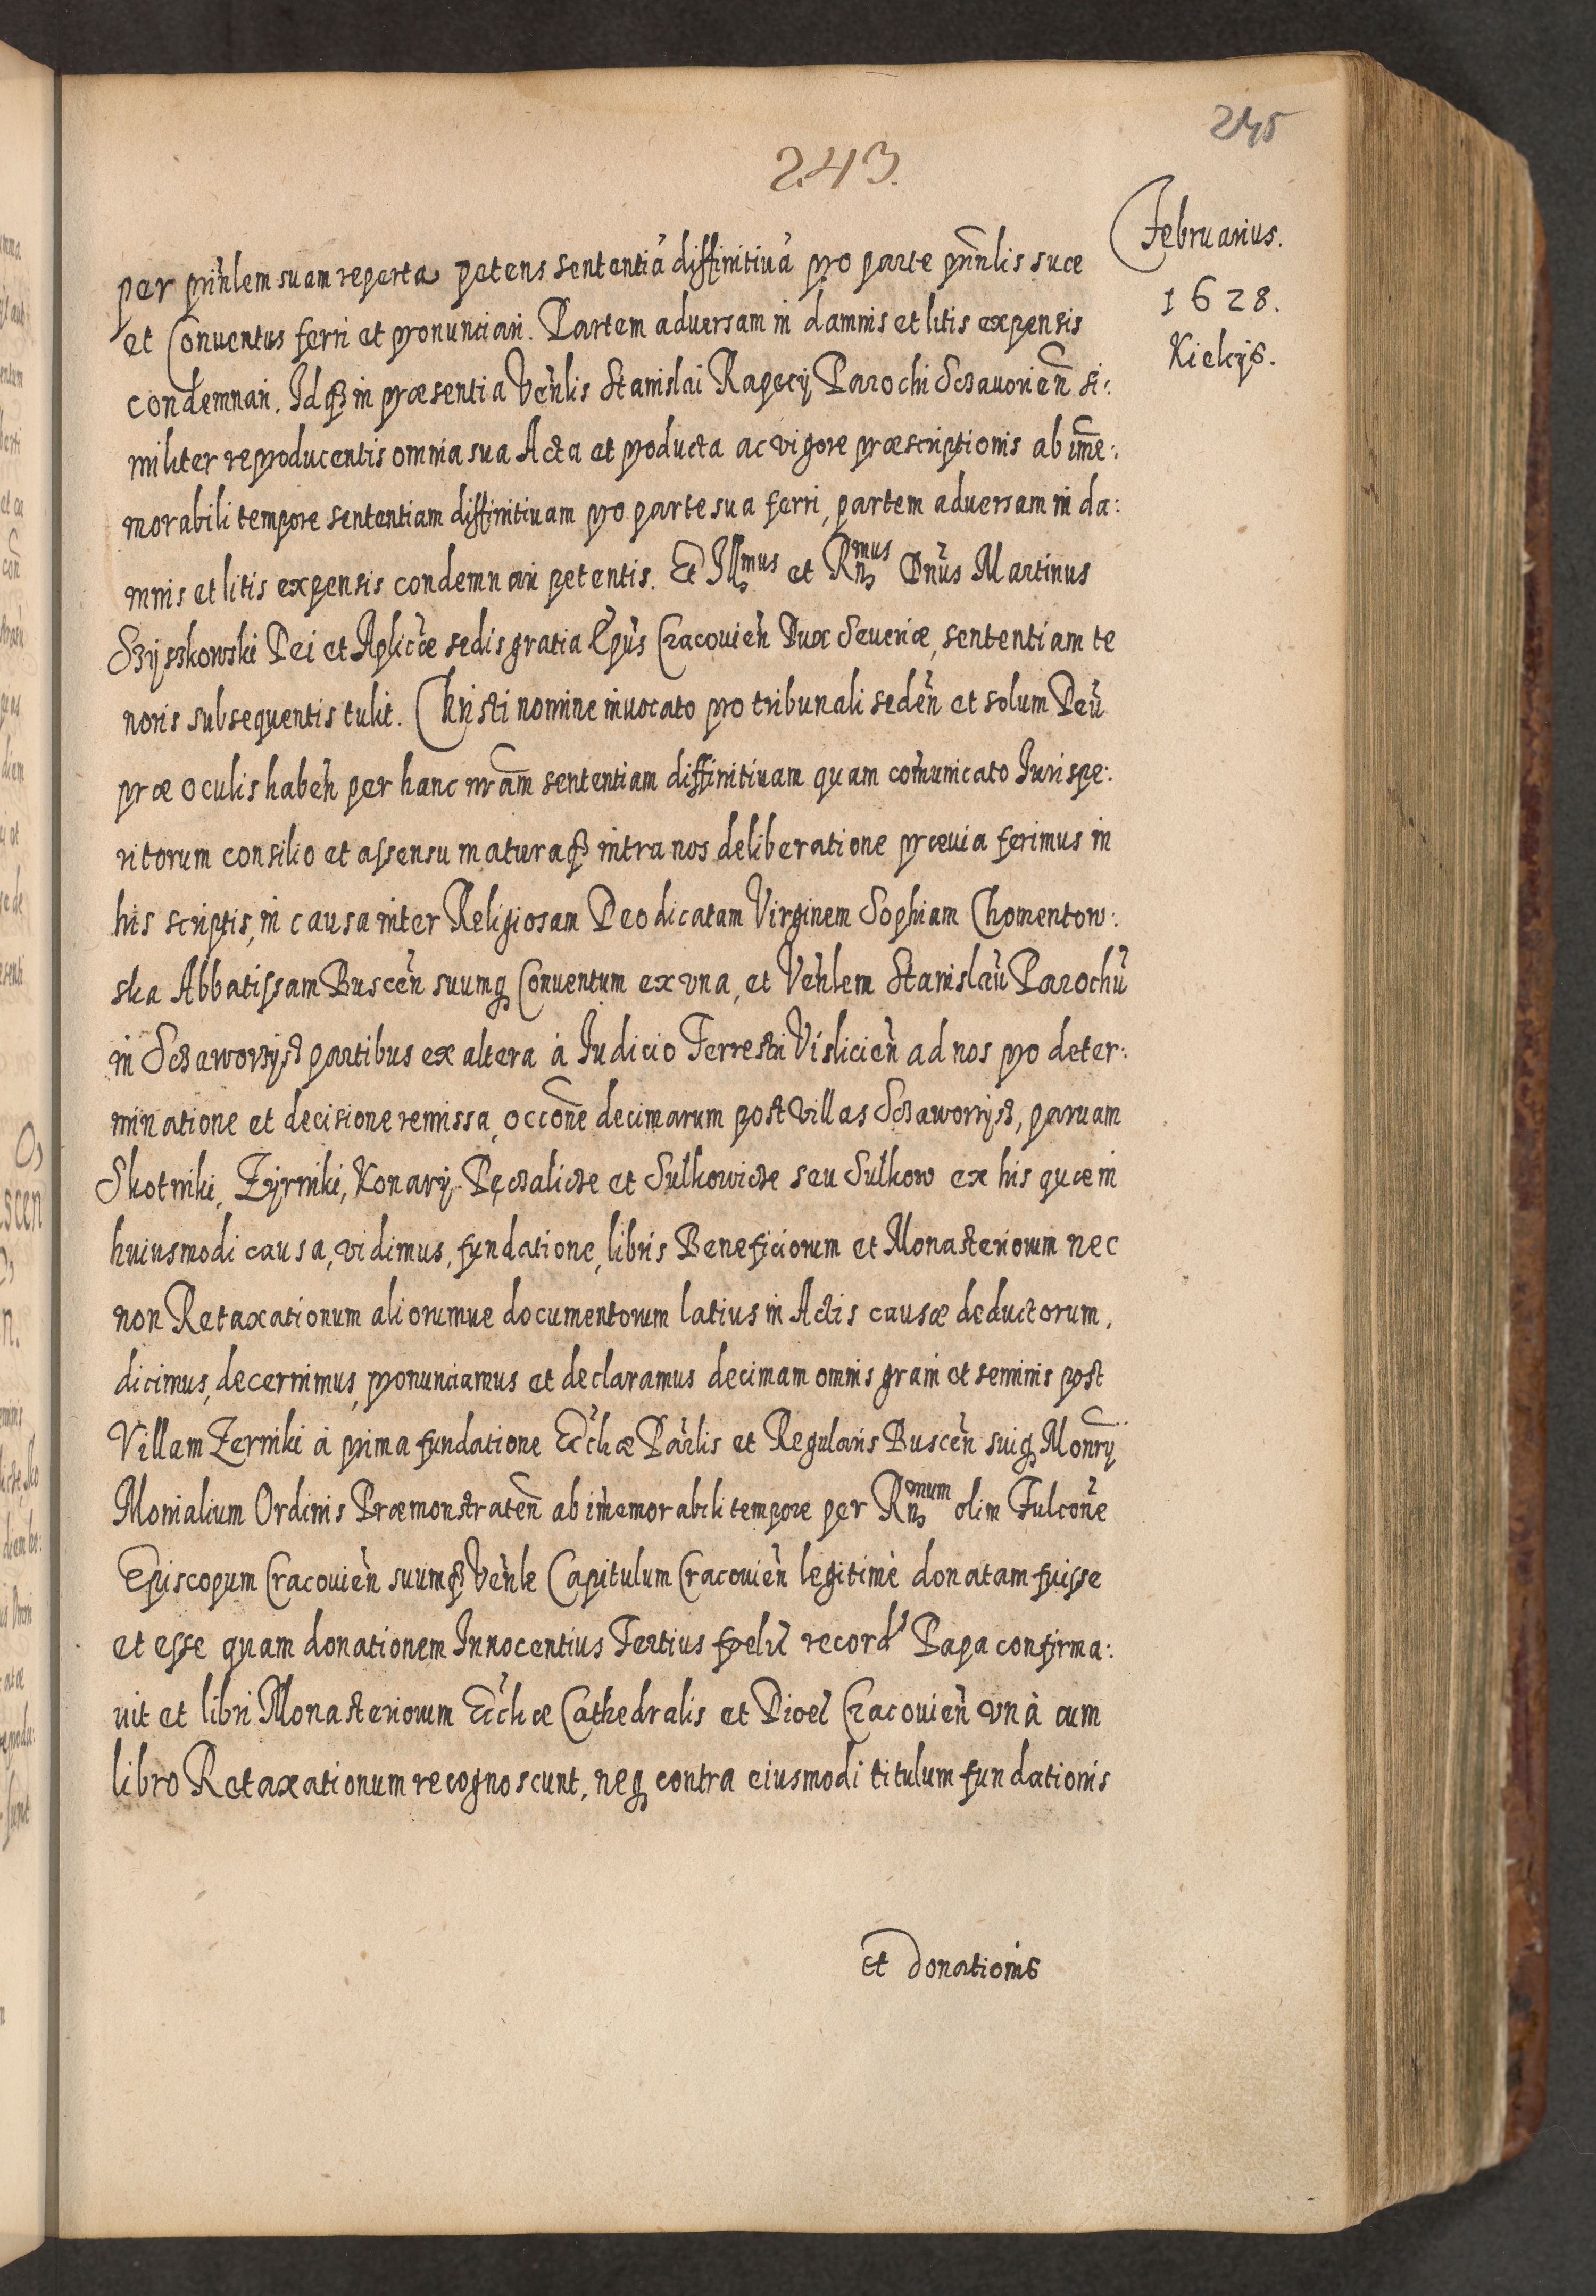 245
243.
Februarius.
1628.
Kielcijs.
per prin̄lem suam reperta petens sententiā diffinitiuā pro parte prin̄lis suæ
et Conuentus ferri et pronunciari. Partem aduersam in damnis et litis expensis
condemnari. Idq̃ in præsentia Ven̄lis Stanislai Rapecij Parochi Sczauorien̄ si:
militer reproducentis omnia sua Acta et producta ac vigore præscriptionis ab im̄e:
morabili tempore sententiam diffinitiuam pro parte sua ferri, partem aduersam in da:
mnis et litis expensis condemnari petentis. Et Illmus et Rn̄mus Dn̄us Martinus
Szyszkowski Dei et Aplicæ sedis gratia Ep̄us Cracouien̄ Dux Seueriæ, sententiam te
noris subsequentis tulit. Christi nomine inuocato pro tribunali seden̄ et solum Deū
præ oculis haben̄ per hanc nr̄am sententiam diffinitiuam quam com̄unicato Iurispe:
ritorum consilio et assensu maturaq̃ intra nos deliberatione præuia ferimus in
his scriptis, in causa inter Religiosam Deo dicatam Virginem Sophiam Chomentow:
ska Abbatissam Buscen̄ suumq̃ Conuentum ex vna, et Ven̄lem Stanislaū Parochū
in Sczaworyż partibus ex altera à Iudicio Terrestri Vislicien̄ ad nos pro deter:
minatione et decisione remissa, occōne decimarum post Villas Sczaworyż, paruam
Skotniki, Żyrniki, Konary, Pęczalicze et Sulkowicze seu Sulkow ex his quæ in
huiusmodi causa, vidimus, fundatione, libris Beneficiorum et Monasteriorum nec
non Retaxationum aliorumue documentorum latius in Actis causæ deductorum,
dicimus, decernimus, pronunciamus et declaramus decimam omnis grani et seminis post
Villam Zerniki à prima fundatione Ecc̄lhæ Pār̄lis et Regularis Buscen̄ suiq̃ Monr̄ij
Monialium Ordinis Præmonstraten̄ ab im̄emorabili tempore per Rn̄mum olim Fulconē
Episcopum Cracouien̄ suumq̃ Ven̄le Capitulum Cracouien̄ legitimè donatam fuisse
et esse quam donationem Innocentius Tertius fœlic̄ record̄ Papa confirma:
uit et libri Monasteriorum Ecc̄lhæ Cathedralis et Diœc̄ Cracouien̄ vnà cum
libro Retaxationum recognoscunt, neq̃ contra eiusmodi titulum fundationis
et donationis